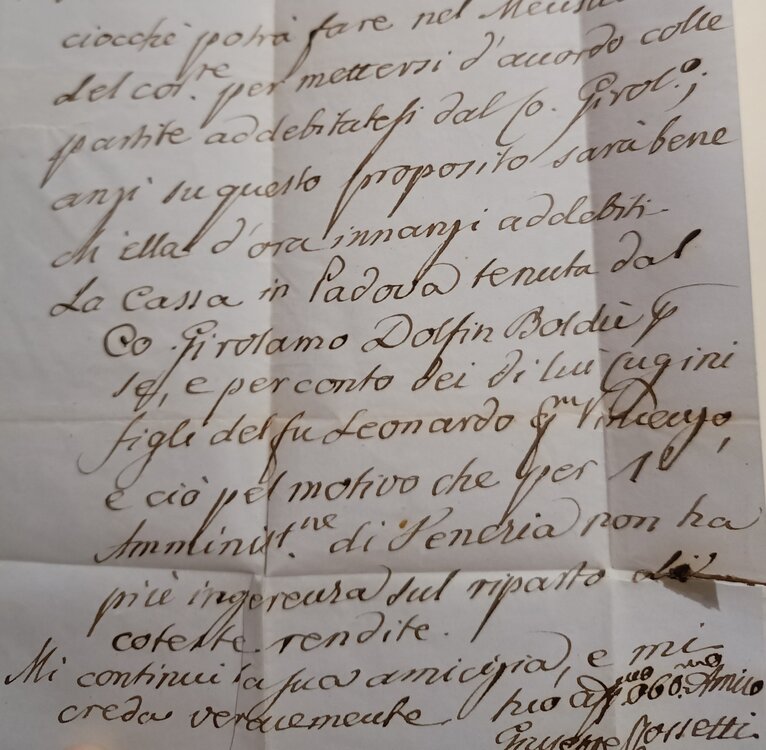 ciocchè potrà fare nel
del cor.te per mettersi d'accordo colle
partite addebitatesi dal Co. Girol.o;
anzi su questo proposito sarà bene
ch'ella d'ora innanzi addebiti
La Cassa in Padova tenuta dal
Co. Girolamo Dolfin Boldù p
se, e per conto dei di lui Cugini
figli del fu Leonardo q.m Vincenzo,
e ciò pel motivo che per l'
Amminist.ne di Venezia non ha
più ingerenza sul riparto di
coteste rendite.
Mi continui la sua amicizia, e mi
creda veracemente suo aff.mo obb.mo Amico
Giuseppe Rossetti